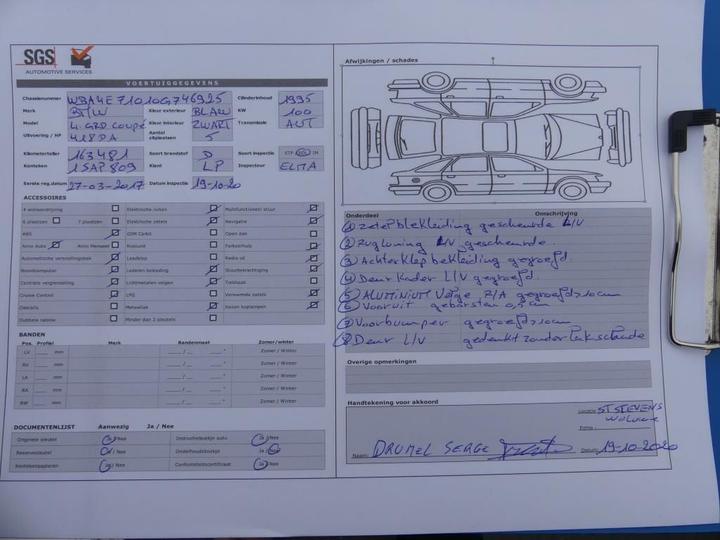 SGS
AUTOMOTIVE SERVICES
VOERTUIGGEGEVENS
Chassisnummer WBA4E71010G746925 Cylinderinhoud 1995
Merk BMW Kleur exterieur BLAUW KW 100
Model 4. GRD COUPE Kleur interieur ZWART Transmissie AUT
Uitvoering / HP 418DA Aantal zitplaatsen 5
Kilometerteller 163481 Soort brandstof D Soort inspectie
Kenteken 1SAP809 Klant LP Inspecteur ELMA
Eerste reg.datum 27-03-2017 Datum inspectie 19-10-2020
ACCESSOIRES
4-wielaandrijving Elektrische ruiten Multifunctioneel stuur
6 plaatsen 7 plaatsen Elektrische zetels Navigatie
ABS GSM Carkit Open dak
Airco Auto Airco Manueel Hifi
Automatische versnellingsbak Laadklep
Boordcomputer Lederen bekleding Stuurbekrachtiging
Centrale vergrendeling Lichtmetalen velgen Trekhaak
Cruise Control LPG Verwarmde zetels
Metaallak Xenon koplampen
Dubbele cabine Minder dan 2 sleutels
BANDEN
Pos. Profiel Merk Bandenmaat Zomer/winter
LV mm / " Zomer / Winter
RV mm / " Zomer / Winter
LA mm / " Zomer / Winter
RA mm / " Zomer / Winter
RW mm / " Zomer / Winter
DOCUMENTENLIJST Aanwezig Ja / Nee
Originele sleutel Ja / Nee Instructieboekje auto Ja / Nee
Reservesleutel Ja / Nee Onderhoudsboekje Ja / Nee
Kentekenpapieren Ja / Nee Conformiteitscertificaat Ja / Nee
Afwijkingen / schades
Onderdeel Omschrijving
① Zetelbekleiding gescheurde L/V
② Rugleuning L/V gescheurde.
③ Achterklep bekleiding gegroefd
④ Deur Kader L/V gegroefd.
⑤ ALUMINIUM Velge R/A gegroefd>10cm
⑥ Voorruit geborsten 0,5cm
⑦ Voorbumper gegroefd>10cm
⑧ Deur L/V gedeukt zonder lakschade
Overige opmerkingen
Handtekening voor akkoord
Locatie: ST STEVENS
WOLUWE
Firma:
Naam: DRUMEL SERGE Datum: 19-10-2020